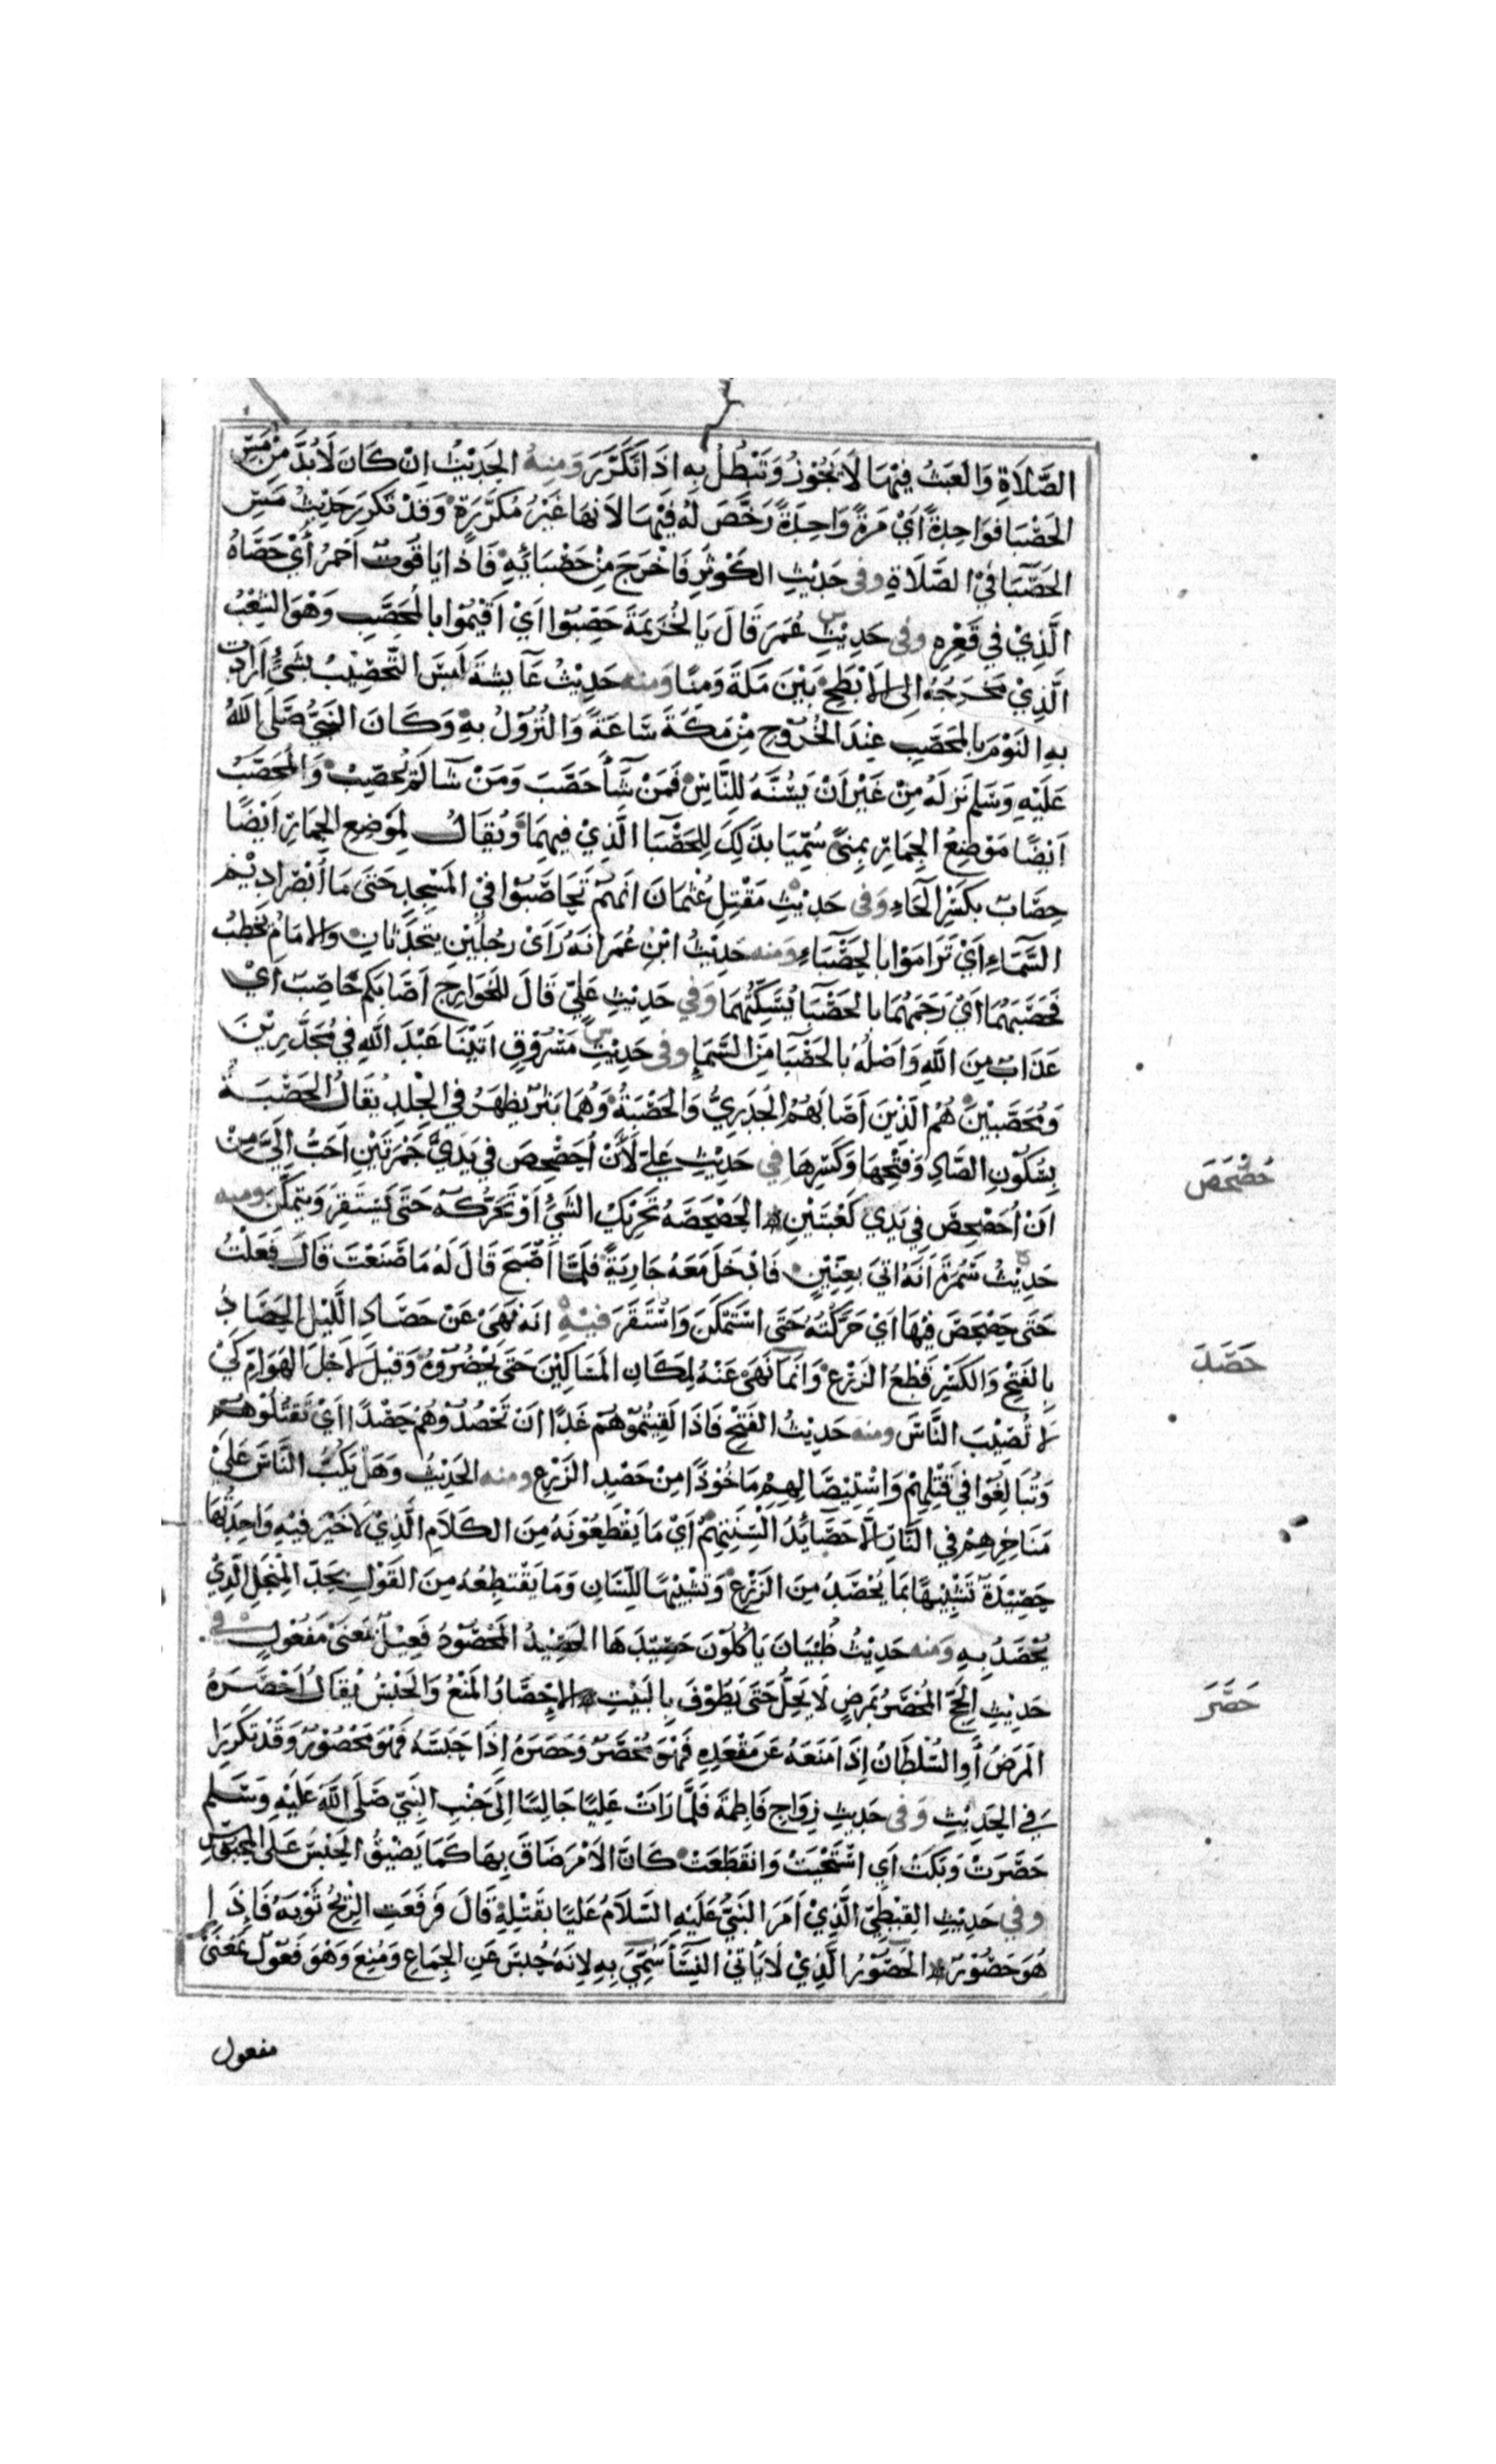 الصَّلَاةِ وَالعَبَثُ فِيْهَا لَا يَجُوْزُ وَتَبْطُلُ بِهِ اِذَا تَكَرَّرَ وَمِنْهُ الحَدِيْثُ اِنْ كَانَ لَابُدَّ مِنْ مَسِّ
الحَصْبَا فَوَاحِدَةً اَيْ مَرَةً وَاحِدَةً رَخَّصَ لَهُ فِيْهَا لاَنهَا غَيْرُ مُكَرَّرَةٍ وَقَدْ تَكَرَرَ حَدِيْثُ مَسِّ
الحَصْبَا فِيْ الصَّلَاةِ وفى حَدِيْثِ الكَوْثَرِ فَاَخْرَجَ مِنْ حَصْبَائِهِ فَاِذَا يَاقُوتٌ اَحْمَرُ أَيْ حَصَاهُ
الَّذِيْ فِي قَعْرِهِ وفى حَدِيْثِ عُمَرَ قَالَ يَالَخُزَيْمَةَ حَصِّبُوْا اَيْ اَقِيْمُوْا بِالمُحَصَّبِ وَهْوَ الشِعْبُ
الَّذِيْ مَخْرَجُهُ اِلى الاَبْطَحِ بَيْنَ مَكَّةَ وَمِنًا وَمنه حَدِيْثُ عَآيشَةَ لَيسَ التَّحْصِيْبُ بِشَيْءٍ اَرَادَتْ
بهِ النَوْمَ بِالمُحَصَّبِ عِنْدَ الخُرُوْجِ مِنْ مَكَةَ سَاعَةً وَالنُزُوْلُ بهِ وَكَانَ النَبِيُّ صَلَى اللهُ
عَلَيْهِ وَسَلم نَزَلَهُ مِنْ غَيْرِ اَنْ يَسُنَّهُ لِلنَّاسِ فَمَنْ شَآَ حَصَّبَ وَمَنْ شَآ لَمْ يُحَصِّبْ وَالمُحَصَّبُ
اَيْضًا مَوْضِعُ الجِمَارِ بِمِنىً سُمِّيَا بِذَلِكَ لِلحَصْبَا الَّذِيْ فِيهِمَا وَيُقَالُ لِمَوْضِعِ الجِمَارِ اَيْضًا
حِصَابٌ بِكَسْرِ الحَاءِ وَفى حَدِيْثِ مَقْتَلِ عُثْمَانَ اَنهُمْ تَحَاصَبُوْا فِيْ المَسْجِدِ حَتَى مَا أُبْصِرَ اَدِيْمُ
السَّمَاءِ اَيْ تَرَامَوْا بِالحَصْبَاءِ وَمنه حَدِيْثُ ابْنِ عُمَرَ اَنَهُ رَاَىْ رَجُلَيْنِ يَتَحَدَّثَانِ وَالاِمَامُ يَخْطُبُ
فَحَصَبَهُمَا اَيْ رَجَمَهُمَا بِالحَصْبَا يُسَكِّتُهُمَا وَفي حَدِيْثِ عَلِيٍّ قَالَ لِلخَوَارِجِ اَصَابَكُمْ حَاصِبٌ اَيْ
عَذَابٌ مِنَ اللهِ وَاَصْلُهُ بِالحَصْبَا مِنَ السَّمَاءِ وفى حَدِيْثِ مَسْرُوْقٍ اَتَيْنَا عَبْدَ اللهِ فِيْ مُجَدَّرِيْنَ
وَمُحَصَّبِيْنَ هُمُ الَّذِيْنَ اَصَابَهُمُ الجُدَرِيُّ وَالحَصْبَةُ وَهُمَا بَثْرٌ يَظْهَرُ فِي الجِلْدِ يُقَالُ الحَصْبَةُ
بِسُكُوْنِ الصَّادِ وَفَتْحِهَا وَكَسْرِهَا في حَدِيْثِ عَلِيٍّ لَأَنْ اُحَصْحِصَ فِي يَدَيَّ جَمْرَتَيْنِ اَحَبُّ اِلَيَّ مِنْ
اَنْ اُحَصْحِصَ فِي يَدَي كَعْبَتَيْنِ الحَصْحَصَهُ تَحْرِيْكُ الشَيْءِ اَوْ تَحَرُّكُه حَتَى يَسْتَقِرَ وَيَتَمَكَّنَ ومنه
حَدِيْثُ سَمُرَةَ اَنَهُ اُتِيَ بِعِنِّيْنٍ فَاَدْخَلَ مَعَهُ جَارِيَةً فَلَمَّا اَصْبَحَ قَالَ لَهُ مَا صَنَعْتَ قَالَ فَعَلْتُ
حَتى حَصْحَصَ فِيْهَا اَيْ حَرَّكْتُهُ حَتَى اسْتَمْكَنَ وَاسْتَقَرَ فيْهِ انهَ نَهَىْ عَنْ حَصَادِ اللَّيْلِ الحَصَادُ
بِالفَتْحِ وَالكَسْرِ قَطْعُ الزَرْعِ وَانمَا نَهَىْ عَنْهُ لِمَكَانِ المَسَاكِيْنَ حَتَى يَحْضُرُوْهُ وَقِيْلَ لاَجْلِ الهَوَامِّ كَيْ
لاَ تُصِيْبَ النَّاسَ ومنه حَدِيْثُ الفَتْحِ فَاِذَا لَقِيْتُمُوْهُمْ غَدًا اَنْ تَحْصُدُوْهُمْ حَصْدًا اَيْ تَقْتُلُوْهُمْ
وَتُبَالِغُوا فِي قَتْلِهِمْ وَاسْتِيْصَالِهِمْ مَاخُوْذًا مِنْ حَصْدِ الزَرْعِ ومنه الحَدِيْثُ وَهَلْ يَكُبُّ النَّاسَ عَلَىْ
مَنَاخِرِهِمْ فِي النَّارِ اِلَّا حَصَآيِدُ اَلْسِنَتِهِمْ اَيْ مَا يَقْطَعُوْنَهُ مِنَ الكَلَامِ الَّذِيْ لَا خَيْرَ فِيْهِ وَاحِدَتُهَا
حَصِيْدَةٌ تَشْبِيْهًا بِمَا يُحْصَدُ مِنَ الزَرْعِ وَتَشْبِيْهًا لِلِّسَانِ وَمَا يَقْتَطِعُهُ مِنَ القَوْلِ بِحَدِّ المِنْجَلِ الَّذِيْ
يُحْصَدُ بِهِ وَمنه حَدِيْثُ ظَبْيَانَ يَاكُلُوْنَ حَصِيْدَهَا الحَصِيْدُ المَحْصُوْدُ فَعِيْلٌ بِمَعْنَىْ مَفْعُوْلٍ في
حَدِيْثِ الحَجِّ المُحْصَرُ بِمَرَضٍ لَا يَحِلُّ حَتَى يَطُوْفَ بِالبَيْتِ الاِحْصَارُ المَنْعُ وَالحَبْسُ يُقَالُ اَحْصَرَهُ
المَرَضُ أَوِ السُّلْطَانُ اِذَا مَنَعَهُ عَنْ مَقْصَدِهِ فَهْوَ مُحْصَرٌ وَحَصَرَهُ اِذَا حَبَسَهُ فَهْوَ مَحْصُوْرٌ وَقَدْ تَكَرَرَا
في الحَدِيْثِ وَفى حَدِيثِ زِوَاجِ فَاطِمَةَ فَلَمَّا رَاَتْ عَلِيًا جَالِسًا اِلَى جَنْبِ النَبِيِّ صَلَى اللهُ عَلَيْهِ وَسَلم
حَصَرَتْ وَبَكَتْ اَي اسْتَحْيَتْ وَانقَطَعَتْ كَانَ الاَمْرَ ضَاقَ بِهَا كَمَا يَضِيْقُ الحَبْسُ عَلَى المَحْبُوْسِ
وفي حَدِيْثِ القِبْطِيِّ الَّذِيْ اَمَرَ النَبِيُّ عَلَيْهِ السَلَامُ عَليًا بِقَتْلِهِ قَالَ فَرَفَعَتِ الرِيْحُ ثَوْبَهُ فَاِذَا
هُوَ حَصُوْرٌ الحَصُوْرُ الَّذِيْ لَا يَاْتِي النِسَآءَ سُمِّيَ بِهِ لاِنَهُ حُبِسَ عَنِ الجِمَاعِ وَمُنِعَ وَهْوَ فَعُوْلٌ بمَعْنَىْ
مفعول
حَصْحَصَ
حَصَدَ
حَصَرَ